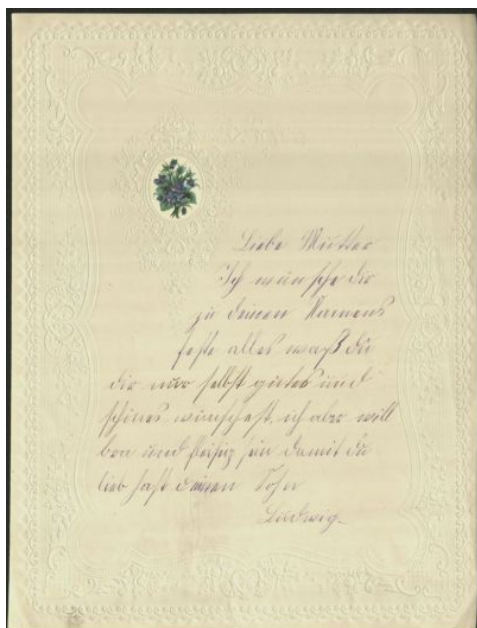 Liebe Mutter
Ich wünsche dir
zu deinen Namens
feste alles waß du
dir nur selbst gutes und
schönes wünschest, ich aber will
bra und fleißig sein damit du
lieb hast deinen Sohn
Ludwig.